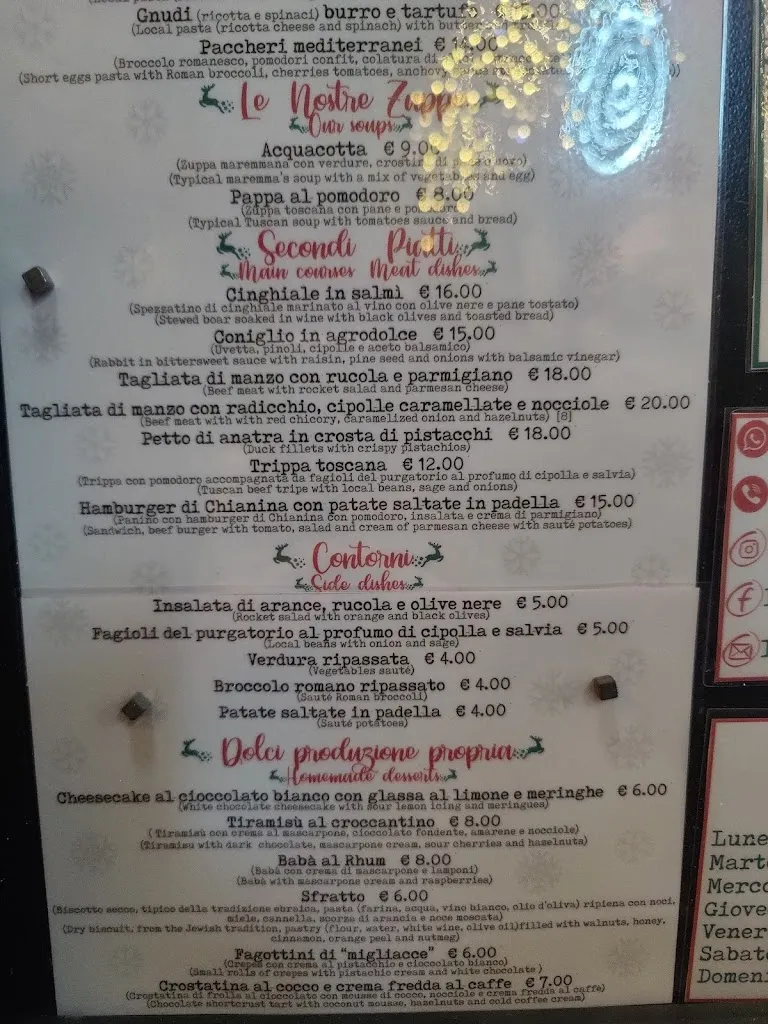 Gnudi (ricotta e spinaci) burro e tartufo
(Local pasta (ricotta cheese and spinach) with
Paccheri mediterranei €
(Broccolo romanesco, pomodori confit, colatura di
(Short eggs pasta with Roman broccoli, cherries tomatoes, anchovy
Le Nostre Zuppe
Our soups
Acquacotta € 9.00
(Zuppa maremmana con verdure, crostini di pane e uovo)
(Typical maromma's soup with a mix of vegetables and egg)
Pappa al pomodoro € 8.00
(Zuppa toscana con pane e pomodoro)
(Typical Tuscan soup with tomatoes sauce and bread)
Secondi Piatti
Main courses Meat dishes
Cinghiale in salmì € 16.00
(Spezzatino di cinghiale marinato al vino con olive nere e pane tostato)
(Stewed boar soaked in wine with black olives and toasted bread)
Coniglio in agrodolce € 15.00
(Uvetta, pinoli, cipolle e aceto balsamico)
(Rabbit in bittersweet sauce with raisin, pine seed and onions with balsamic vinegar)
Tagliata di manzo con rucola e parmigiano € 18.00
(Beef meat with rocket salad and parmesan cheese)
Tagliata di manzo con radicchio, cipolle caramellate e nocciole € 20.00
(Beef meat with with red chicory, caramelized onion and hazelnuts) [8]
Petto di anatra in crosta di pistacchi € 18.00
(Duck fillets with crispy pistachios)
Trippa toscana € 12.00
(Trippa con pomodoro accompagnata da fagioli del purgatorio al profumo di cipolla e salvia)
(Tuscan beef tripe with local beans, sage and onions)
Hamburger di Chianina con patate saltate in padella € 15.00
(Panino con hamburger di Chianina con pomodoro, insalata e crema di parmigiano)
(Sandwich, beef burger with tomato, salad and cream of parmesan cheese with sauté potatoes)
Contorni
Side dishes
Insalata di arance, rucola e olive nere € 5.00
(Rocket salad with orange and black olives)
Fagioli del purgatorio al profumo di cipolla e salvia € 5.00
(Local beans with onion and sage)
Verdura ripassata € 4.00
(Vegetables sauté)
Broccolo romano ripassato € 4.00
(Sauté Roman broccoli)
Patate saltate in padella € 4.00
(Sauté potatoes)
Dolci produzione propria
Homemade desserts
Cheesecake al cioccolato bianco con glassa al limone e meringhe € 6.00
(White chocolate cheesecake with sour lemon icing and meringues)
Tiramisù al croccantino € 8.00
(Tiramisù con crema al mascarpone, cioccolato fondente, amarene e nocciole)
(Tiramisu with dark chocolate, mascarpone cream, sour cherries and hazelnuts)
Babà al Rhum € 8.00
(Babà con crema di mascarpone e lamponi)
(Babà with mascarpone cream and raspberries)
Sfratto € 6.00
(Biscotto secco, tipico della tradizione ebraica, pasta (farina, acqua, vino bianco, olio d'oliva) ripiena con noci,
miele, cannella, scorza di arancia e noce moscata)
(Dry biscuit, from the Jewish tradition, pastry (flour, water, white wine, olive oil)filled with walnuts, honey,
cinnamon, orange peel and nutmeg)
Fagottini di "migliacce" € 6.00
(Crepes con crema al pistacchio e cioccolato bianco)
(Small rolls of crepes with pistachio cream and white chocolate )
Crostatina al cocco e crema fredda al caffe € 7.00
(Crostatina di frolla al cioccolato con mousse di cocco, nocciole e crema fredda al caffe)
(Chocolate shortcrust tart with coconut mousse, hazelnuts and cold coffee cream)
Lune
Marte
Merco
Giove
Vener
Sabat
Domeni